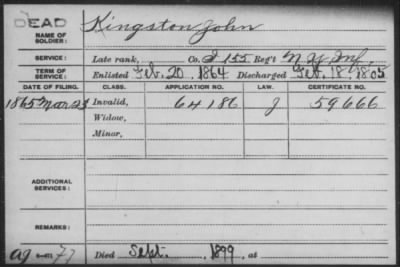 DEAD
NAME OF SOLDIER: Kingston, John
SERVICE: Late rank, Co. I 155 Reg't N.Y. Inf.
TERM OF SERVICE: Enlisted Feb. 20, 1864 Discharged Feb. 18, 1865
DATE OF FILING. CLASS. APPLICATION NO. LAW. CERTIFICATE NO.
1865 Mar 23 Invalid, 64186 J 59666
Widow,
Minor,
ADDITIONAL SERVICES:
REMARKS:
Died Sept. , 1899, at